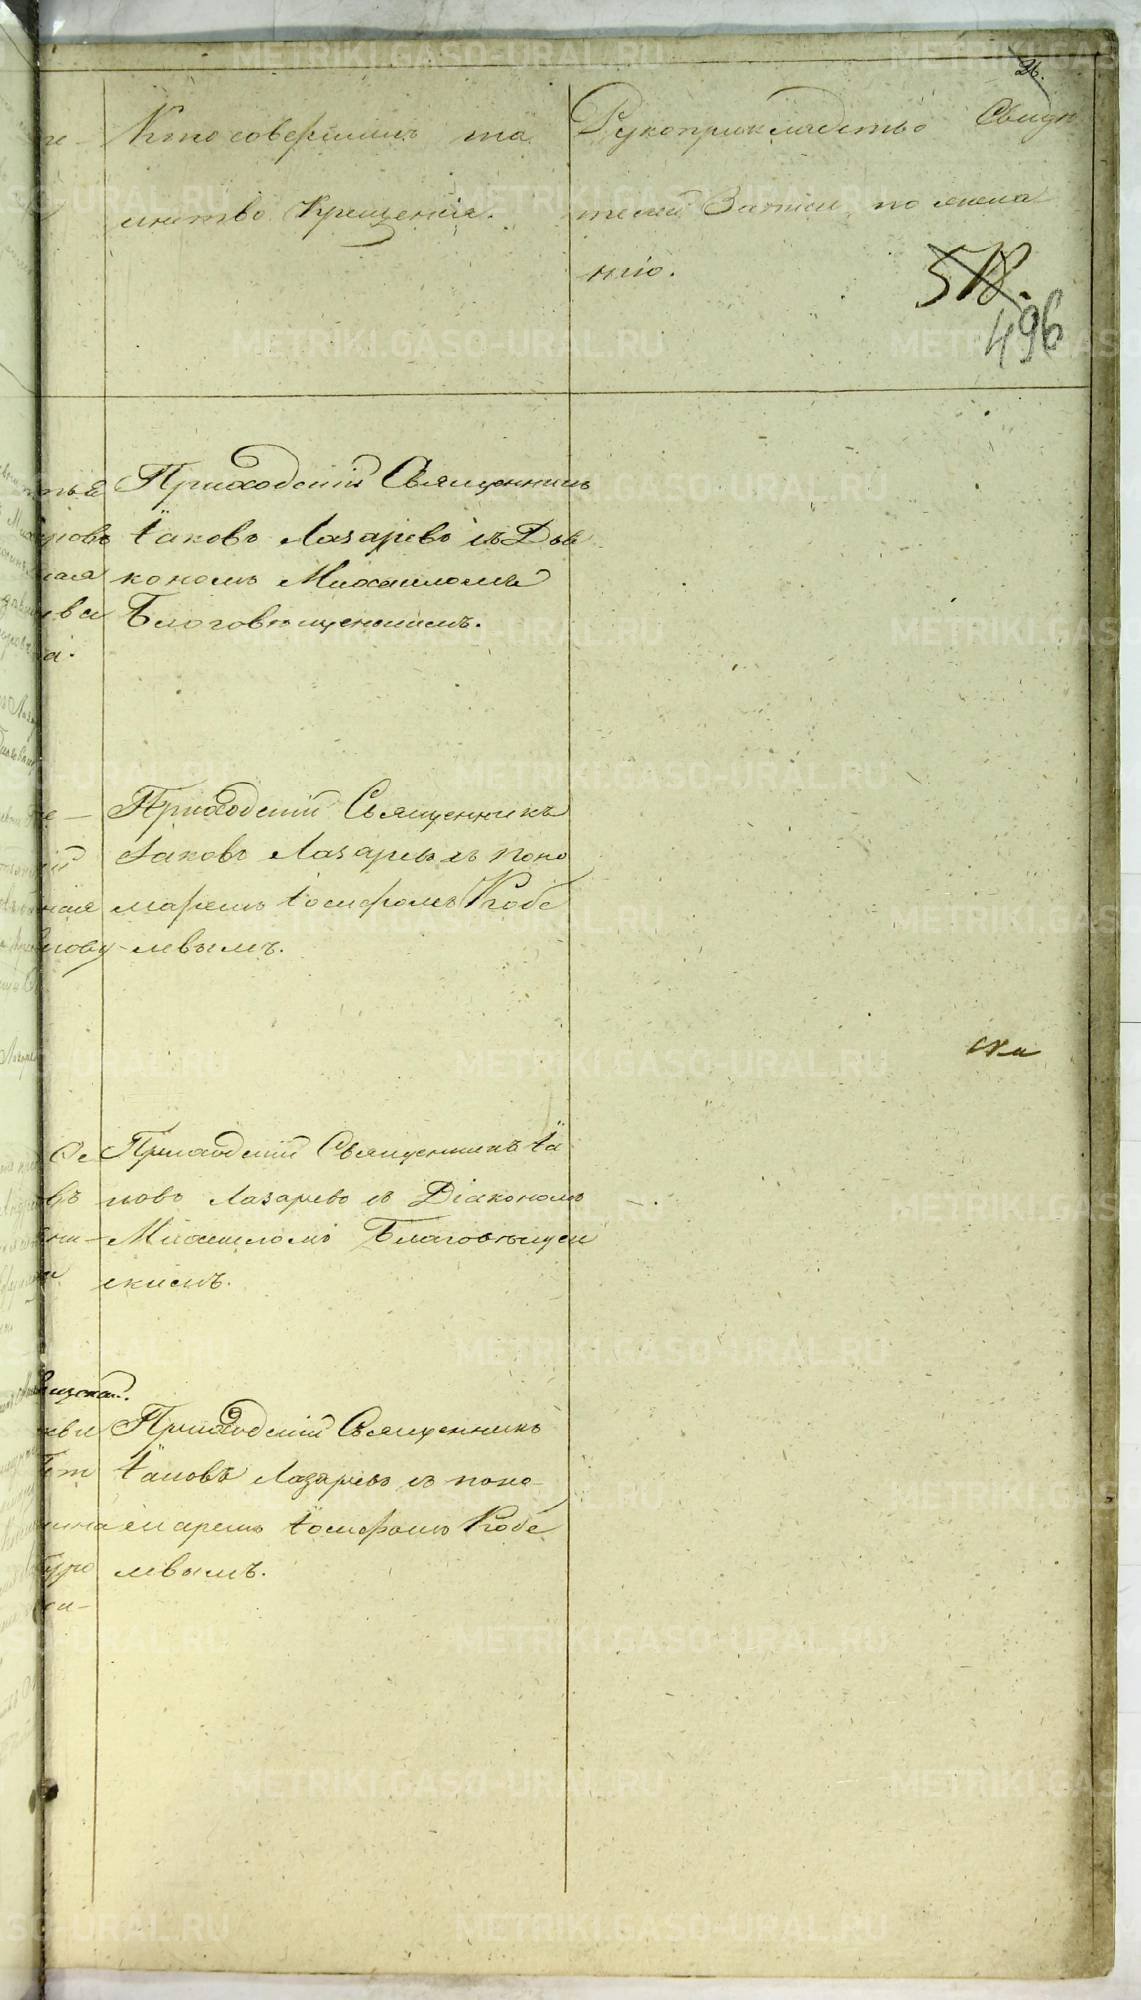 26.
Кто совершилъ та
инство Крещенія.
Рукоприкладство Свидѣ
телей Записи по жела
нію.
518.
496
Приходскій Священникъ
Іаковъ Лазаревъ съ Діа
кономъ Михаиломъ
Благовѣщенскимъ.
Приходскій Священникъ
Іаковъ Лазаревъ съ поно
маремъ Іосифомъ Кобе
левымъ.
Приходскій Священникъ Іа
ковъ Лазаревъ съ Діакономъ
Михаиломъ Благовѣщен
скимъ.
Приходскій Священникъ
Іаковъ Лазаревъ съ поно-
маремъ Іосифомъ Кобе
левымъ.
METRIKI.GASO-URAL.RU